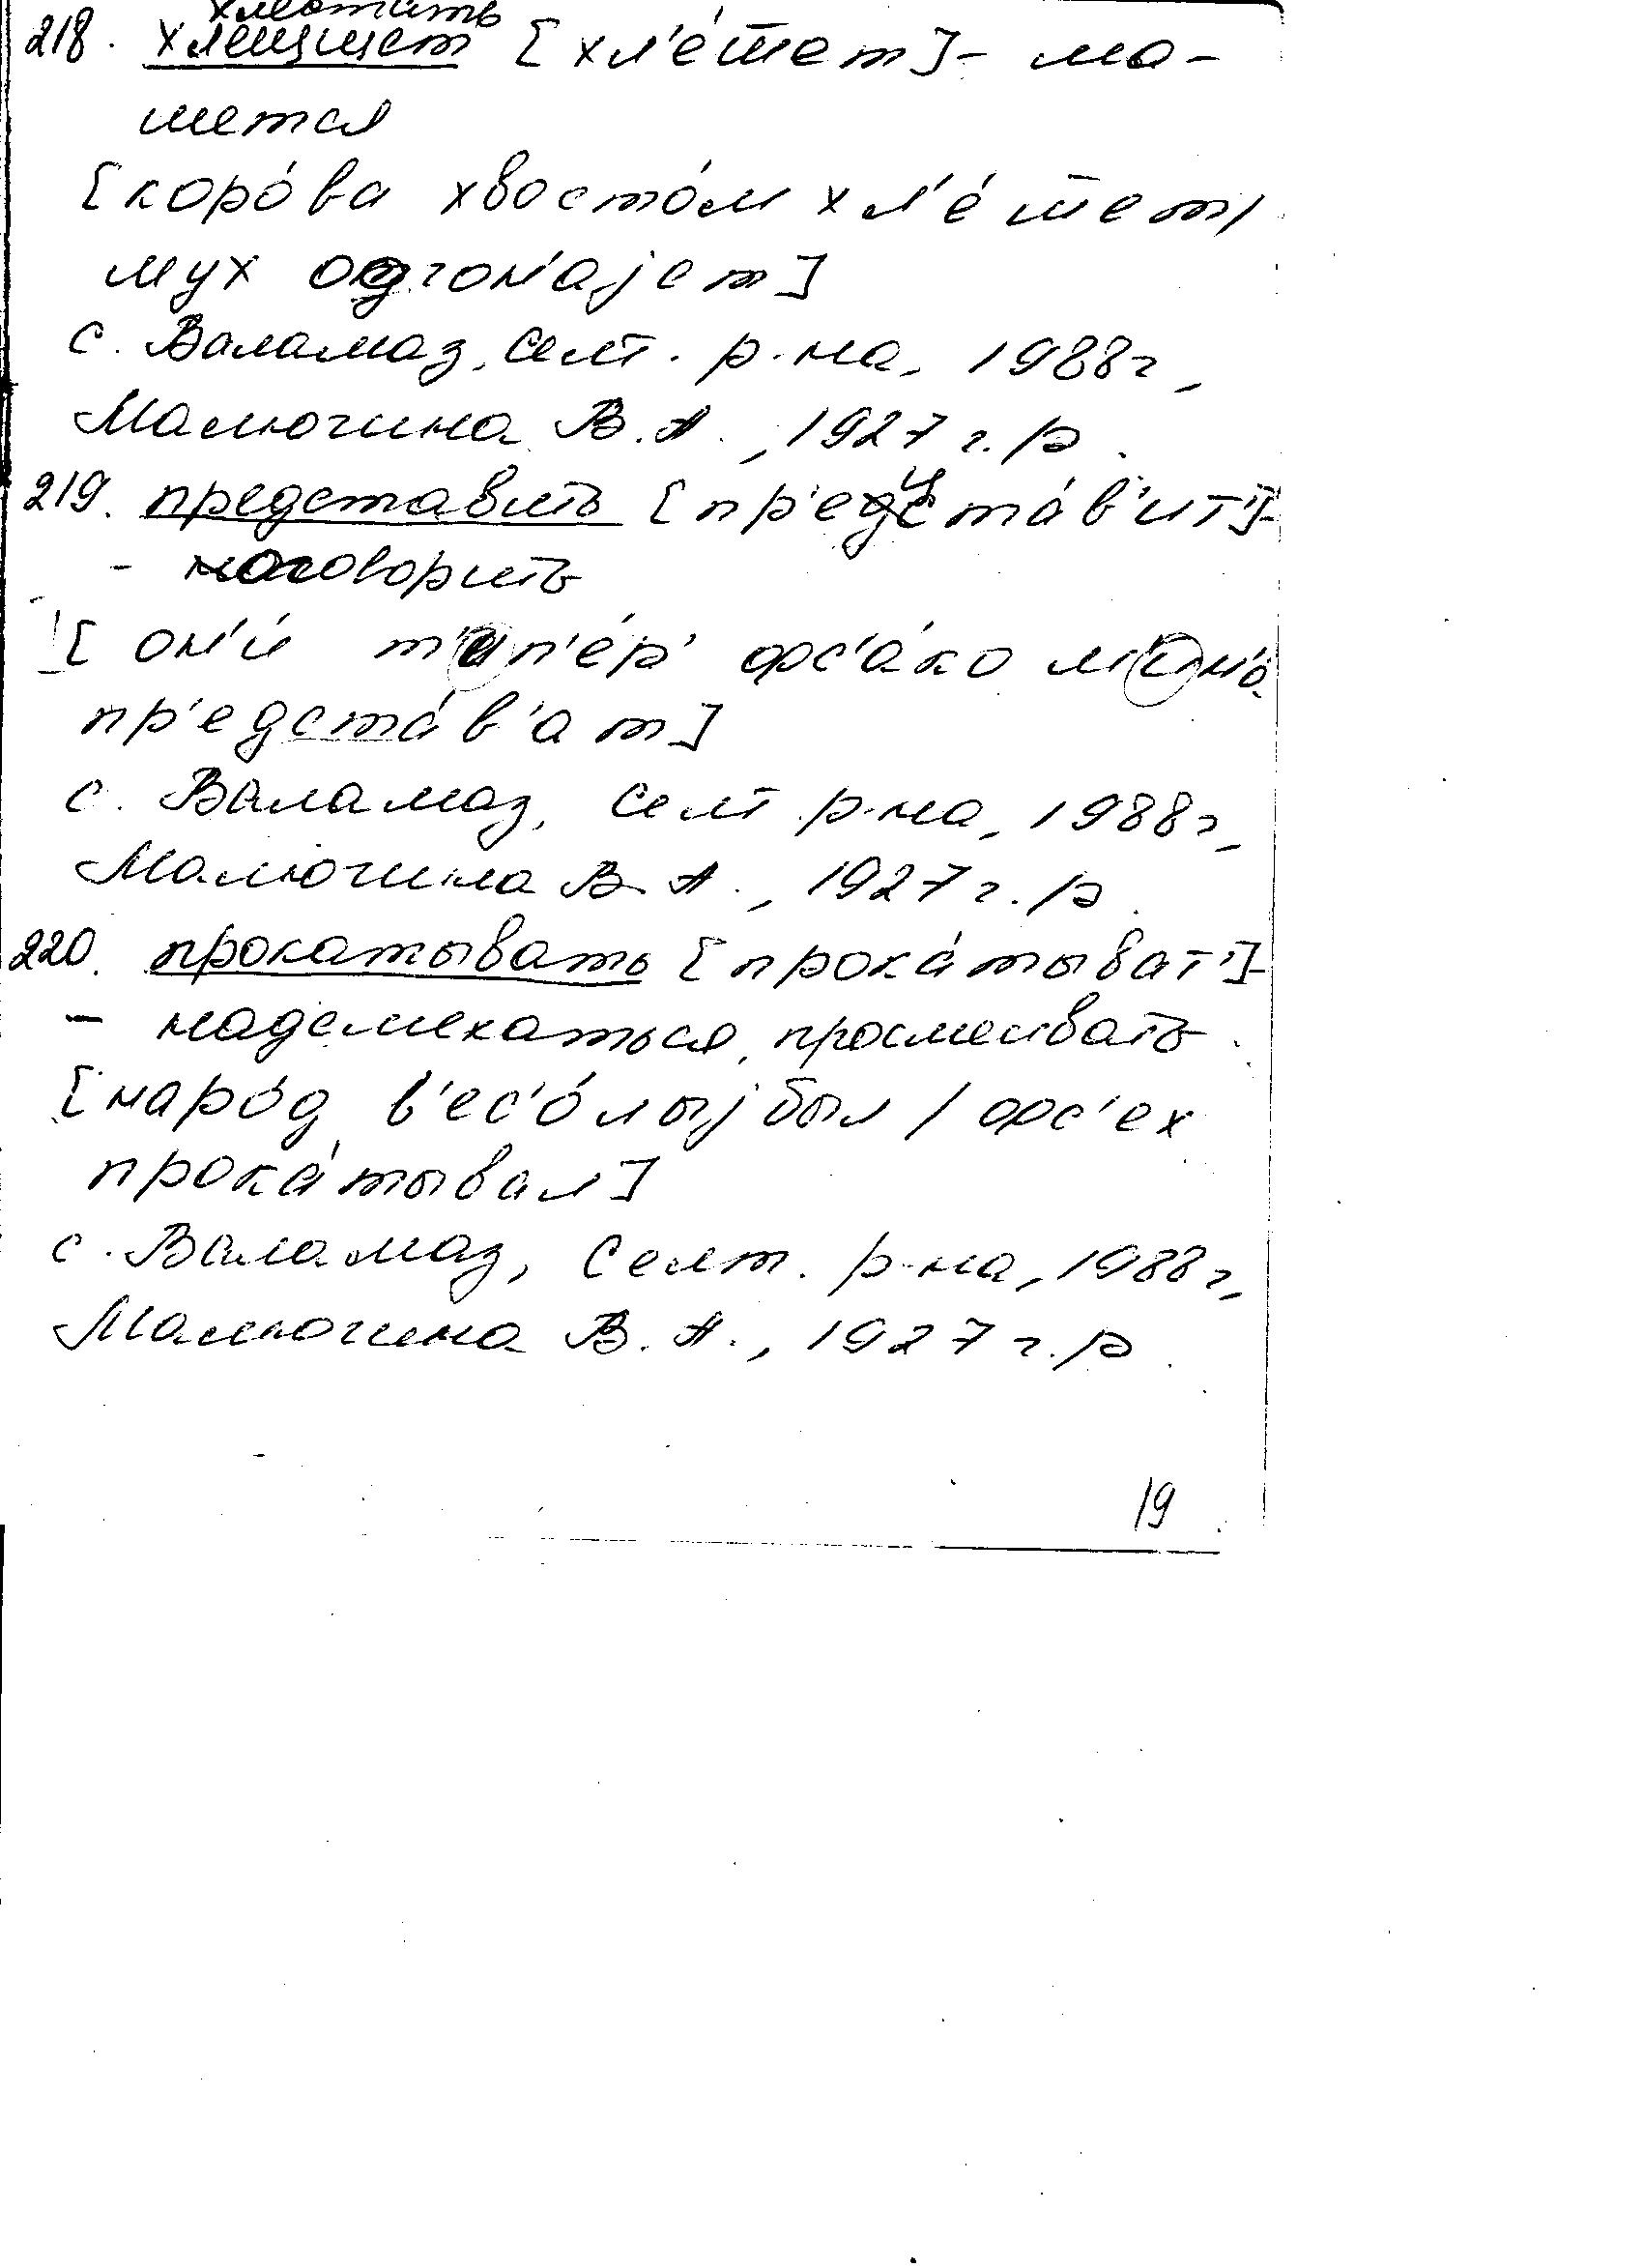 хлестать
218. хлещщет [хл'е́ш̅ет] - ма-
шется
[коро́ва хвосто́м хл'е́ш̅ет/
мух одгон'ајет]
с. Валамаз, Селт. р-на, 1988г,
Малючина В.А., 1927 г.р.
219. представить [пр'едста́в'ит'] -
- наговорить
[он'и́ т'ип'е́р' фс'а́ко м'ин'а́
пр'едста́в'ат]
с. Валамаз, Селт р-на, 1988г,
Малючина В.А., 1927 г.р.
220. прокатывать [прока́тыват'] -
- надсмехаться, просмеивать.
[наро́д в'ес'о́лыј был / фс'ех
прока́тывал]
с. Валамаз, Селт. р-на, 1988г,
Малючина В.А., 1927 г.р.
19